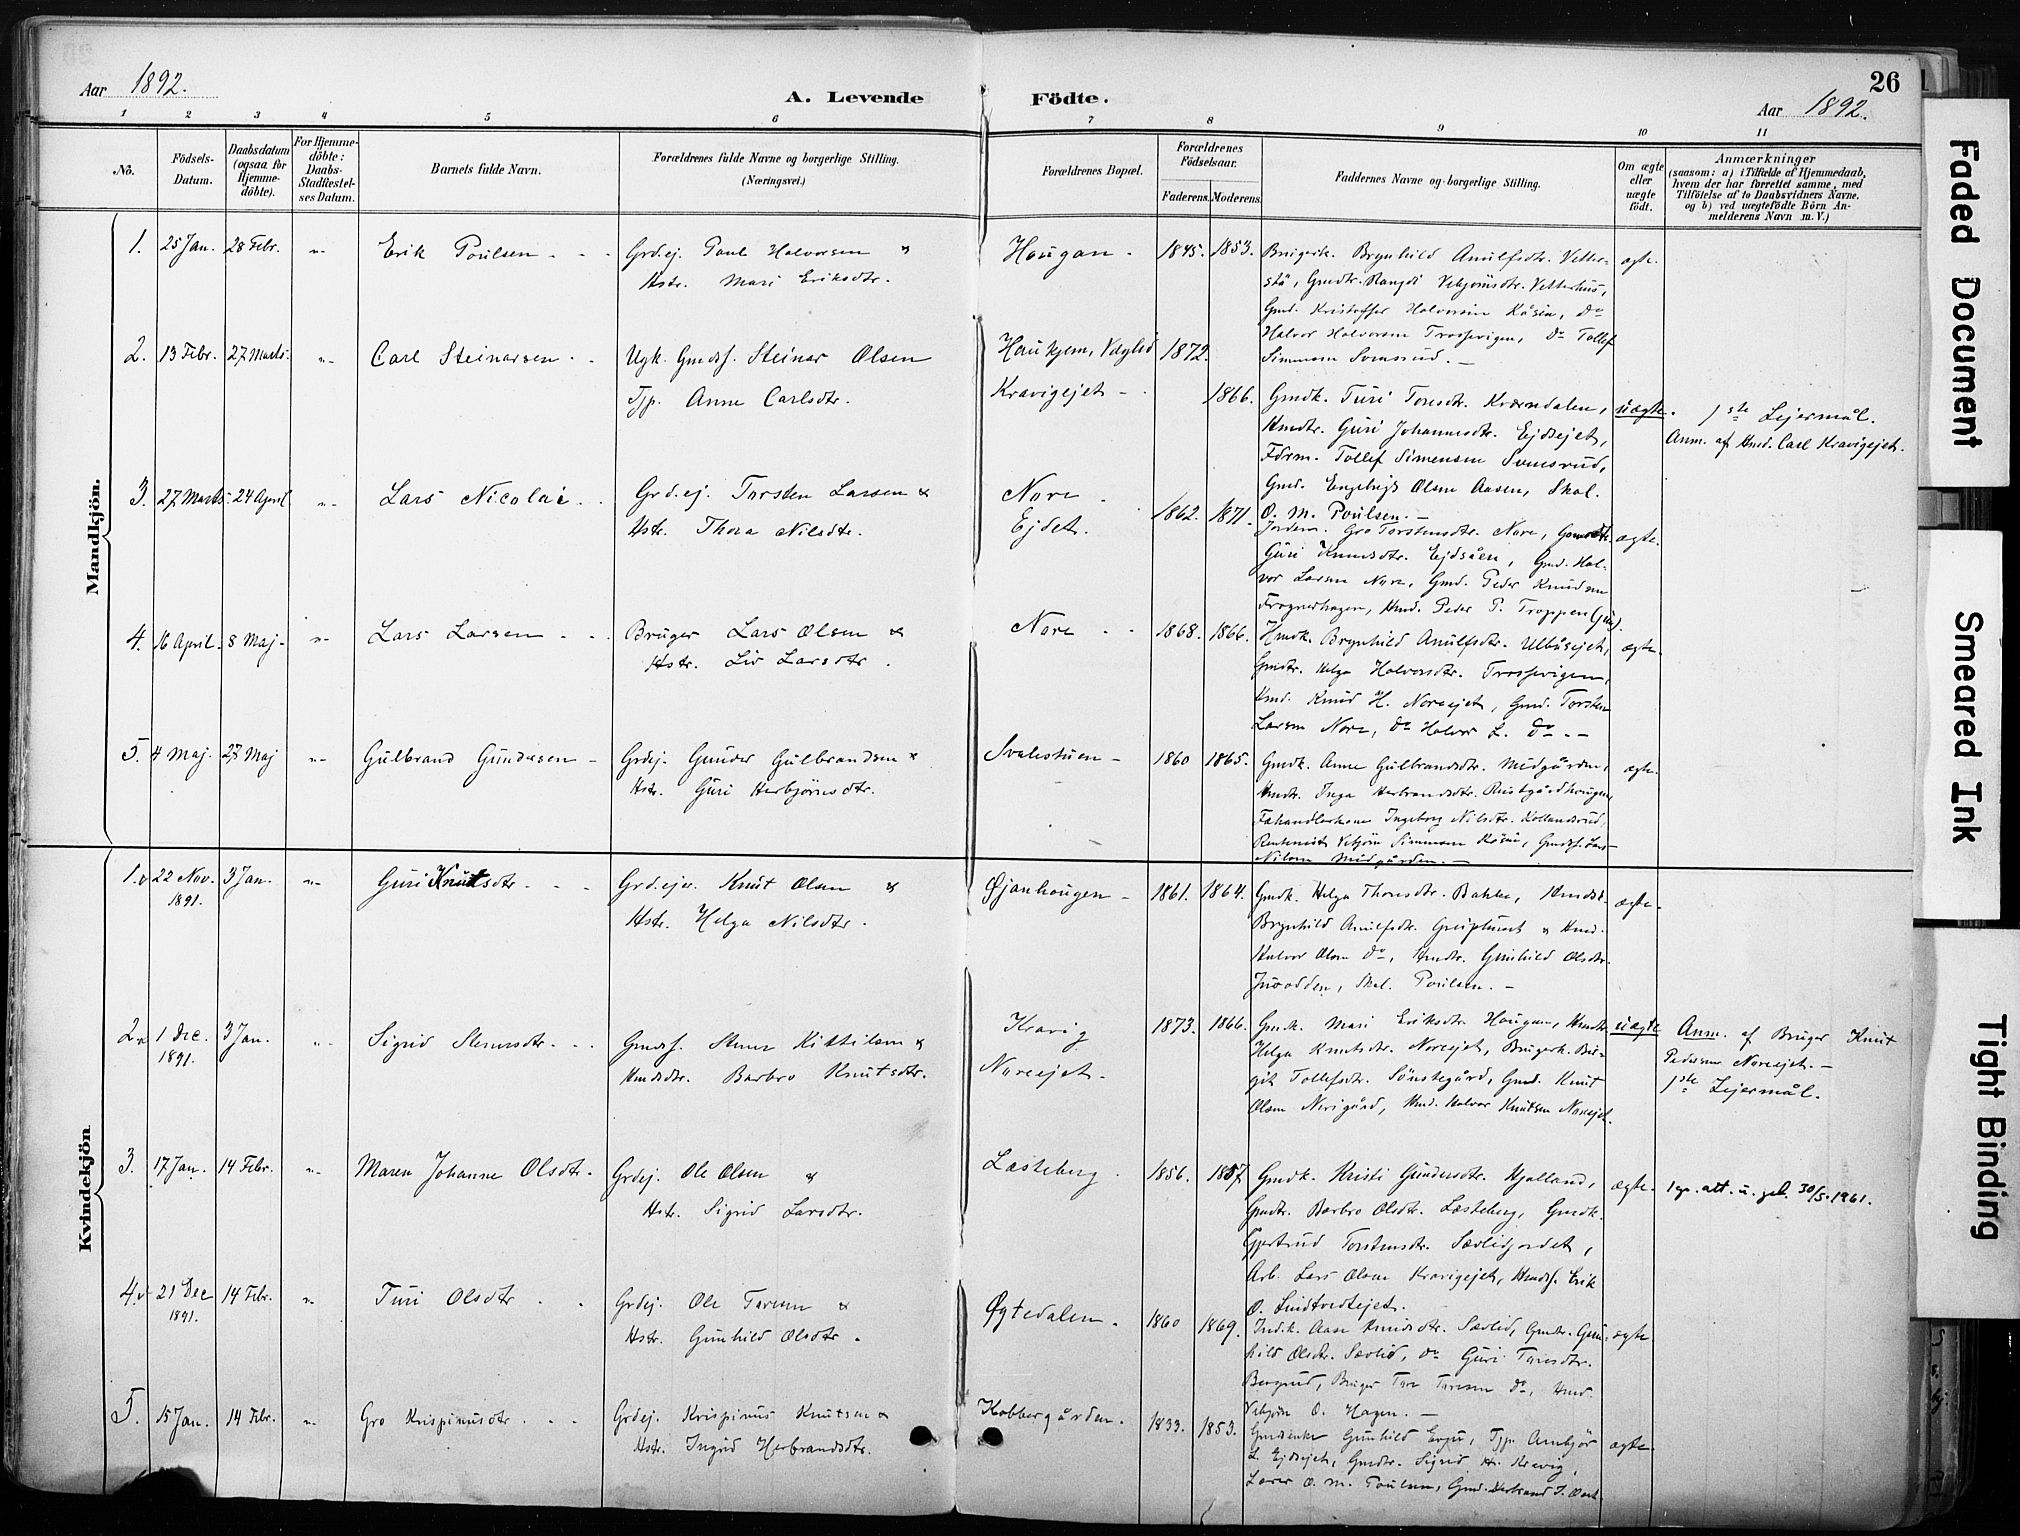 Aar 1892.
A. Levende Födte.
26
Aar 1892.
1 2 3 4 5 6 7 8 9 10 11
No.
Födsels-Datum.
Daabsdatum (ogsaa for Hjemmedöbte).
For Hjemmedöbte: Daabs-Stadfæstelses Datum.
Barnets fulde Navn.
Forældrenes fulde Navne og borgerlige Stilling.
(Næringsvei.)
Forældrenes Bopæl.
Forældrenes Födselsaar.
Faderens. Moderens.
Faddernes Navne og borgerlige Stilling.
Om ægte eller uægte födt.
Anmærkninger
(saasom: a) i Tilfælde af Hjemmedaab,
hvem der har forrettet samme, med
Tilföielse af to Daabsvidners Navne,
og b) ved uægtefödte Börn An-
melderens Navn m. V.)
Mandkjön.
1. 25 Jan. 28 Febr. "- Erik Poulsen - - Grdej. Paul Halvorsen &
Hstr. Mari Eriksdtr.
Haugan - 1845. 1853.
Brugerk. Brynhild Arnulfsdtr. Vetter-
stå, Gmdtr. Rangdi Vebjörnsdtr. Vetterhus,
Gmd. Kristoffer Halvorsen Kåsin, Do
Halvor Halvorsen Trossevigen, Do Tollef
Simensen Svensrud. -
ægte.
2. 13 Febr. 27 Marts. "- Carl Steinarsen - - Ugk. Gmdsf. Steinar Olsen
Tjp. Anne Carlsdtr.
Haukjem, Væglid 1872.
Kravigejet - 1866.
Gmdk. Turi Toresdtr. Kværndalen,
Hmdtr. Guri Johannesdtr. Ejdsejet,
Fdrm. Tollef Simensen Svensrud,
Gmd. Engebrigt Olsen Aasen, Skol.
O. M. Poulsen. -
uægte.
1ste Lejermål.
Anm. af Hmd. Carl Kravigejet.
3. 27 Marts 24 April "- Lars Nicolai - Grdej. Torsten Larsen &
Hstr. Thora Nilsdtr.
Nore
Ejdet. 1862. 1871.
Jorderm. Gro Torstensdtr. Nore, Gmdtr.
Guri Knutsdtr. Ejdsåen, Gmd. Hal-
vor Larsen Nore, Gmd. Peder Knudsen
Frognerhagen, Hmd. Peder P. Troppen (jun).
ægte.
4. 16 April. 8 Maj - "- Lars Larsen - - Bruger Lars Olsen &
Hstr. Liv Larsdtr.
Nore - - 1868. 1866.
Hmdk. Brynhild Arnulfsdtr. Ulbåsejet,
Gmdtr. Helga Halvorsdtr. Trossevigen,
Hmd. Knud H. Noreejet, Gmd. Torsten
Larsen Nore, Do Halvor L. Do. -
ægte.
5. 4 Maj. 27 Maj "- Gulbrand Gundersen - Grdej. Gunder Gulbrandsen &
Hstr. Guri Herbjörnsdtr.
Svalestuen - 1860 1865.
Gmdk. Anne Gulbrandsdtr. Midgården,
Hmdtr. Inga Herbrandsdtr. Rustgårdhougen,
Fæhandlerkone Ingeborg Nilsdtr. Kollandsrud,
Rentenist Vebjörn Simensen Kåsin, Gmdsf. Lars
Nilsen Midgården. -
ægte.
Kvindekjön
1. v 22 Nov. 1891. 3 Jan. "- Guri Knutsdtr - - - Grdejer Knut Olsen &
Hstr. Helga Nilsdtr.
Øjanhougen - 1861. 1864.
Gmdk. Helga Thoresdtr. Bakken,
Brynhild Arnulfsdtr. & Hmd.
Halvor Olsen Do, Hmdtr. Gunhild Olsdtr.
Juvodden, Skol. Poulsen. -
ægte.
2. v 1 Dec. 1891. 3 Jan. "- Sigrid Stenersdtr. - - Gmdsf. Stener Kittilsen &
Hmdsdtr. Barbro Knutsdtr.
Kravig 1873. 1866.
Noreejet.
Gmdk. Mari Eriksdtr. Hougan, Hmdtr.
Helga Knutsdtr. Noreejet, Brugerk. Bir-
git Tollefsdtr. Sönstegård, Gmd. Knut
Olsen Nerigård, Hmd. Halvor Knutsen Noreejet.
uægte
Anm. af Bruger Knut
Pedersen Noreejet. -
1ste Lejermål.
3. 17 Jan. 14 Febr. "- Maren Johanne Olsdtr. Grdej. Ole Olsen &
Hstr. Sigrid Larsdtr.
Læsteberg. 1856. 1857
Gmdk. Kristi Gundersdtr. Hjalland,
Gmdtr. Barbro Olsdtr. Læsteberg, Gmdk.
Gjertrud Torstensdtr. Sævlidjordet,
Arb. Lars Olsen Kravigejet, Hmdsf. Erik
O. Lindtvedtejet.
ægte.
lgp. att. u. geb. 30/5. 1961.
4. v 21 Dec 1891. 14 Febr. "- Turi Olsdtr - - Grdej. Ole Toresen &
Hstr. Gunhild Olsdtr.
Øgtedalen. 1860 1869.
Indk. Aase Knudsdtr. Sævlid, Gmdtr. Gun-
hild Olsdtr. Sævlid, Do Guri Toresdtr.
Bergrud, Bruger Tore Toresen Do, Hmd.
Vebjörn O. Hagen. -
ægte.
5. 15 Jan. 14 Febr. "- Gro Krispinusdtr. - - Grdej. Krispinus Knutsen &
Hstr. Ingrid Herbrandsdtr.
Kobbergården. 1833. 1853.
Gunhild Tjp. Arnbjör
L. Ejdsejet, Gmdtr. Sigrid H. Kravig,
Lærer O. M. Poulsen, Gmd. Herbrand
ægte.
Faded Document
Smeared Ink
Tight Binding